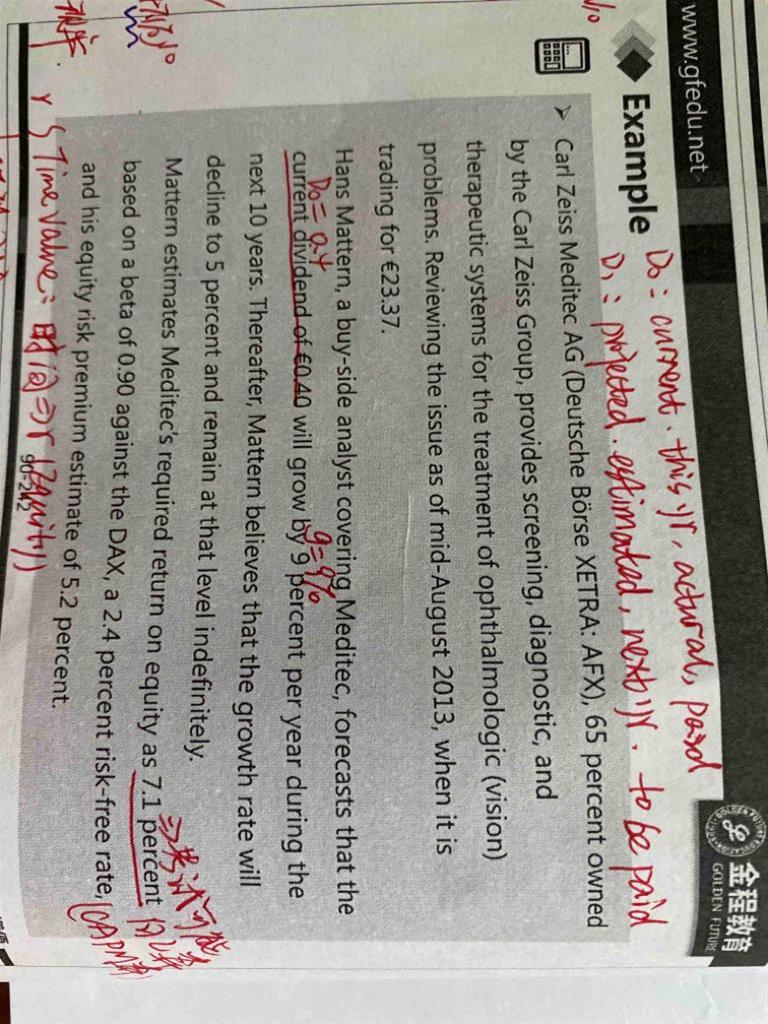 www.gfedu.net
金程教育
GOLDEN FUTURE
Example
D₀: current. this yr, actural, paid
D₁: projected. estimated, next yr. to be paid
➢ Carl Zeiss Meditec AG (Deutsche Börse XETRA: AFX), 65 percent owned
by the Carl Zeiss Group, provides screening, diagnostic, and
therapeutic systems for the treatment of ophthalmologic (vision)
problems. Reviewing the issue as of mid-August 2013, when it is
trading for €23.37.
Hans Mattern, a buy-side analyst covering Meditec, forecasts that the
D₀ = 0.4
g=9%
current dividend of €0.40 will grow by 9 percent per year during the
next 10 years. Thereafter, Mattern believes that the growth rate will
decline to 5 percent and remain at that level indefinitely.
Mattern estimates Meditec's required return on equity as 7.1 percent
based on a beta of 0.90 against the DAX, a 2.4 percent risk-free rate,
(CAPM
and his equity risk premium estimate of 5.2 percent.
r
Time value: 时间 ⇒ r (equity)
90-242